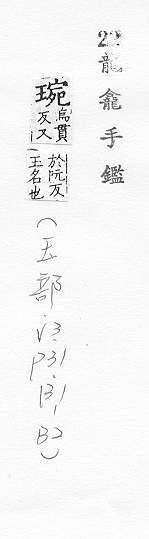 22龍龕手鑑
琬烏貫反又
於阮反玉名也
(玉部·v3·p31,131,B2)